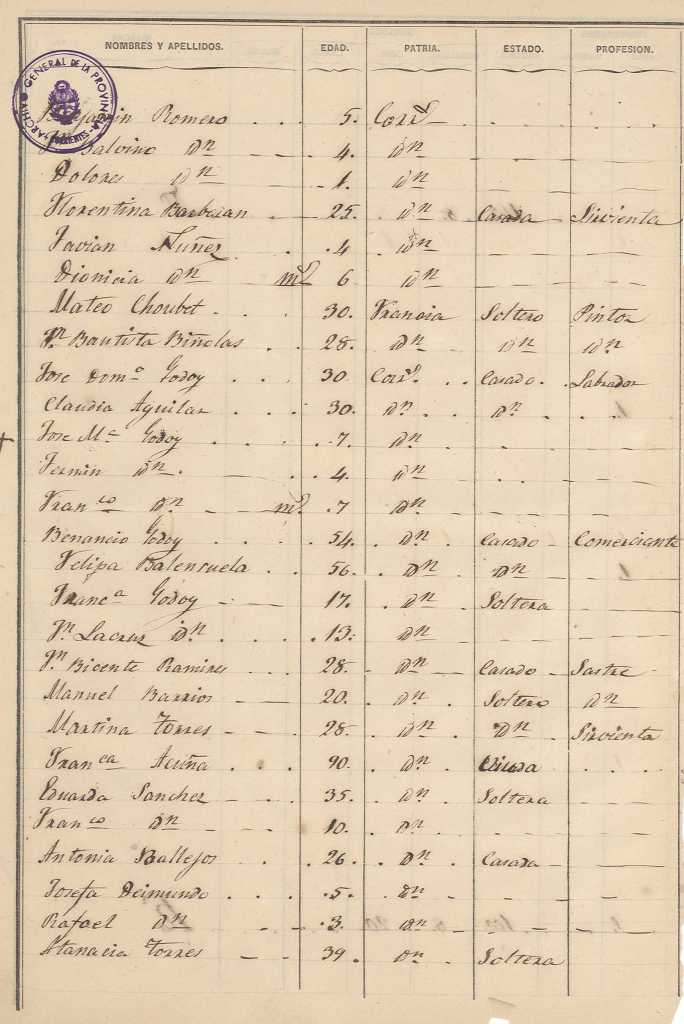 NOMBRES Y APELLIDOS. EDAD. PATRIA. ESTADO. PROFESION.
ARCHIVO GENERAL DE LA PROVINCIA CORRIENTES
Benjamin Romero 5. Corrs
Jn Balvino Dn 4. Dn
Dolores Dn 1. Dn
Florentina Barbaian 25. Dn Casada Sirvienta
Favian Nuñez 4 Dn
Dionicia Dn ml 6 Dn
Mateo Choubet 30. Francia Soltero Pintor
Jn Bautista Biñolas 28. Dn Dn Dn
Jose Domo Godoy 30 Corrs Casado Labrador
Claudia Aguilar 30. Dn Dn
Jose Ma Godoy 7. Dn
Fermin Dn 4. Dn
Franco Dn ml 7 Dn
Benancio Godoy 54. Dn Casado Comerciante
Felipa Balensuela 56. Dn Dn
Franca Godoy 17. Dn Soltera
Jn Lacruz Dn 13. Dn
Jn Bicente Ramires 28. Dn Casado Sastre
Manuel Barrios 20. Dn Soltero Dn
Martina Torres 28. Dn Dn Sirvienta
Franca Acuña 90. Dn Viuda
Eduarda Sanchez 35. Dn Soltera
Franco Dn 10. Dn
Antonia Ballejos 26. Dn Casada
Josefa Deimundo 5. Dn
Rafael Dn 3. Dn
Atanacia Torres 39. Dn Soltera